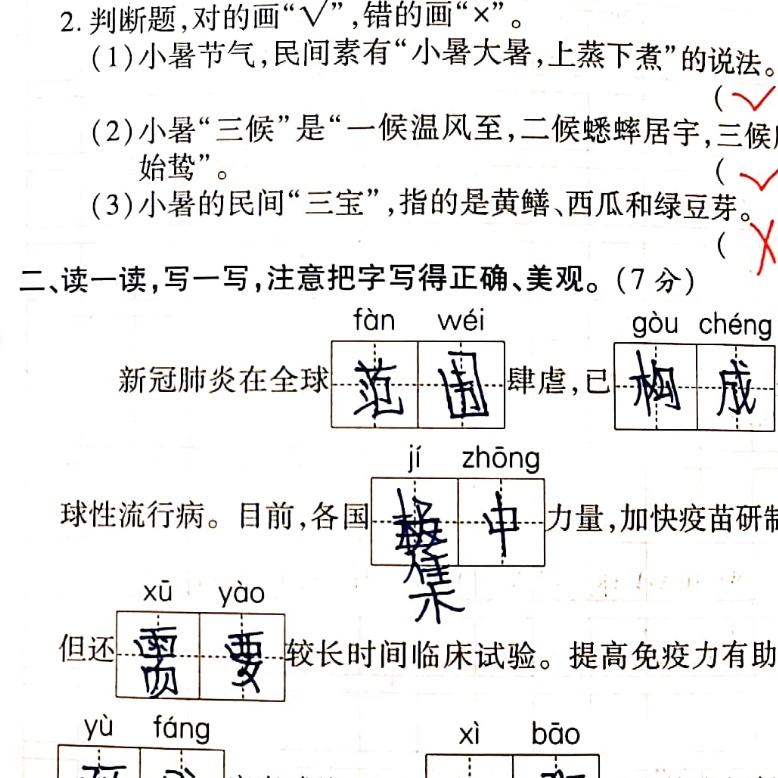 2.判断题,对的画“√”,错的画“×”。
(1)小暑节气,民间素有“小暑大暑,上蒸下煮”的说法。
(✓
(2)小暑“三候”是“一候温风至,二候蟋蟀居宇,三候
始鸷”。
(✓
(3)小暑的民间“三宝”,指的是黄鳝、西瓜和绿豆芽。
(×
二、读一读,写一写,注意把字写得正确、美观。(7分)
fàn wéi gòu chéng
新冠肺炎在全球范围肆虐,已构成
jí zhōng
球性流行病。目前,各国集中力量,加快疫苗研制
xū yào
但还需要较长时间临床试验。提高免疫力有助
yù fáng xì bāo